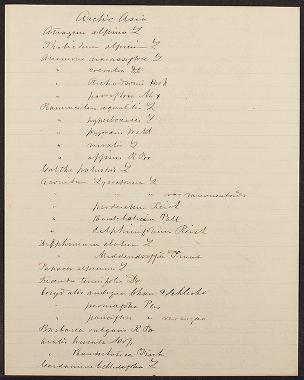 Arctic Asia
Atragene alpina L
Thalictrum alpinum L
Anemone
" Richardsonii Hook
" parviflora Mx
Ranunculus aquatilis L
" hyperboreus L
" pygmaeus Wahl
" nivalis L
" affinis R Br
Caltha palustris L
Aconitum Lycoctonum L
" " var
" productum Reich
" Kamtchaticum Pall
" delphinifolium Reich
Delphinium elatum L
" Middendorffii Traut
Papaver alpinum L
Dicentra tenuifolia
Corydalis ambigua Cham & Schlecht
" Pers
" pauciflora
Barbarea vulgaris R Br
Arabis hirsuta Scop
"
Cardamine bellidifolia L